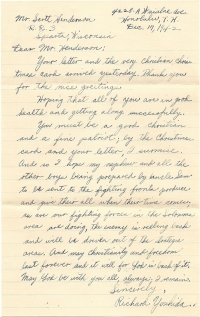 4028-A Keanu Str
Honolulu, T. H.
Dec. 19, 1942
Mr. Scott Henderson
R. R. 3
Sparta, Wisconsin
Dear Mr. Henderson:
Your letter and the very Christian Christmas card arrived yesterday. Thank you
for the nice greetings.
Hoping that all of you are in good
health and getting along successfully.
You must be a good christian
and a fine patriot, by the Christmas
card and your letter, I surmise.
And so I hope my nephew and all the
other boys being prepared by Uncle Sam
to be sent to the fighting fronts produce
and give their all when their time comes,
as our fighting forces in the Solomon
area are doing, the enemy is reeling back
and will be driven out of the
areas. And may Christianity and freedom
last forever and it will for God is back of it.
May God be with you all, always, I remain
Sincerely,
Richard Yoshida